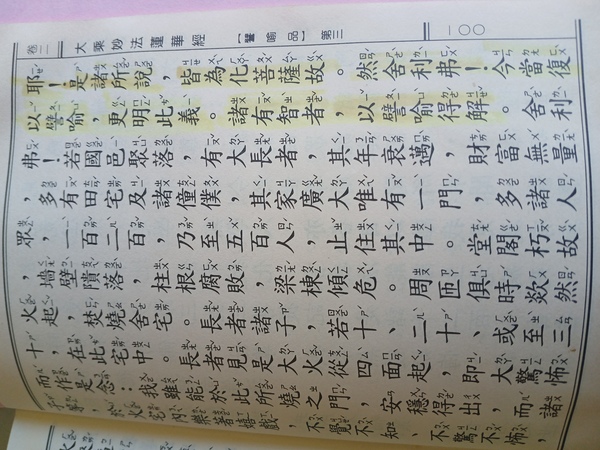 卷二　大乘妙法蓮華經　【譬喻品】第三　一〇〇
耶！是諸所說，皆為化菩薩故。然舍利弗！今當復
以譬喻，更明此義。諸有智者，以譬喻得解。舍利
弗！若國邑聚落，有大長者，其年衰邁，財富無量
，多有田宅及諸僮僕，其家廣大唯有一門，多諸人
眾，一百二百，乃至五百人，止住其中。堂閣朽故
，墻壁隤落，柱根腐敗，梁棟傾危。周匝俱時欻然
火起，焚燒舍宅。長者諸子，若十、二十、或至三
十，在此宅中。長者見是大火從四面起，即大驚怖
而作是念：我雖能於此所燒之門，安穩得出，而諸
子等，於火宅內樂著嬉戲，不覺不知、不驚不怖，